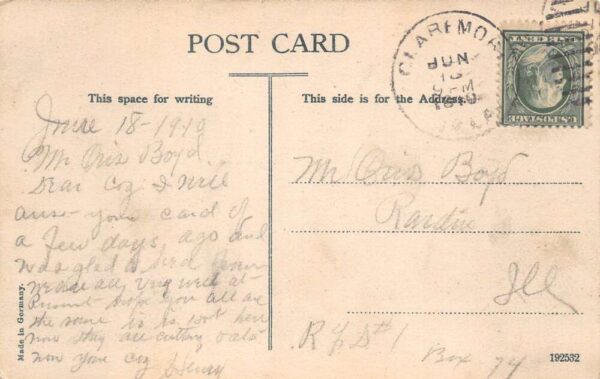 POST CARD
This space for writing
This side is for the Address.
CLAREMORE
JUN
18
PM
1910
OKLA.
U.S. POSTAGE
June 18-1910
Mr Oris Boyd
Dear Coz I will
answer your card of
a few days, ago and
was glad to hear from
we are all, very well at
Present hope you all are
the same it is hot here
now they are cutting oats
now your coz
Henry
Mr Oris Boyd
Rardin
Ill
R F D #1
Box 74
Made in Germany.
192532